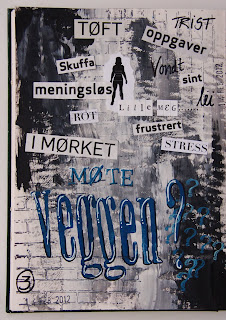 TØFT
TRIST
oppgaver
Skuffa
Vondt
sint
meningsløs
Lille meg.....
lei
ROT
frustrert
I MØRKET
STRESS
MØTE
Veggen?
? ? ? ? ? ?
3
2012
2012